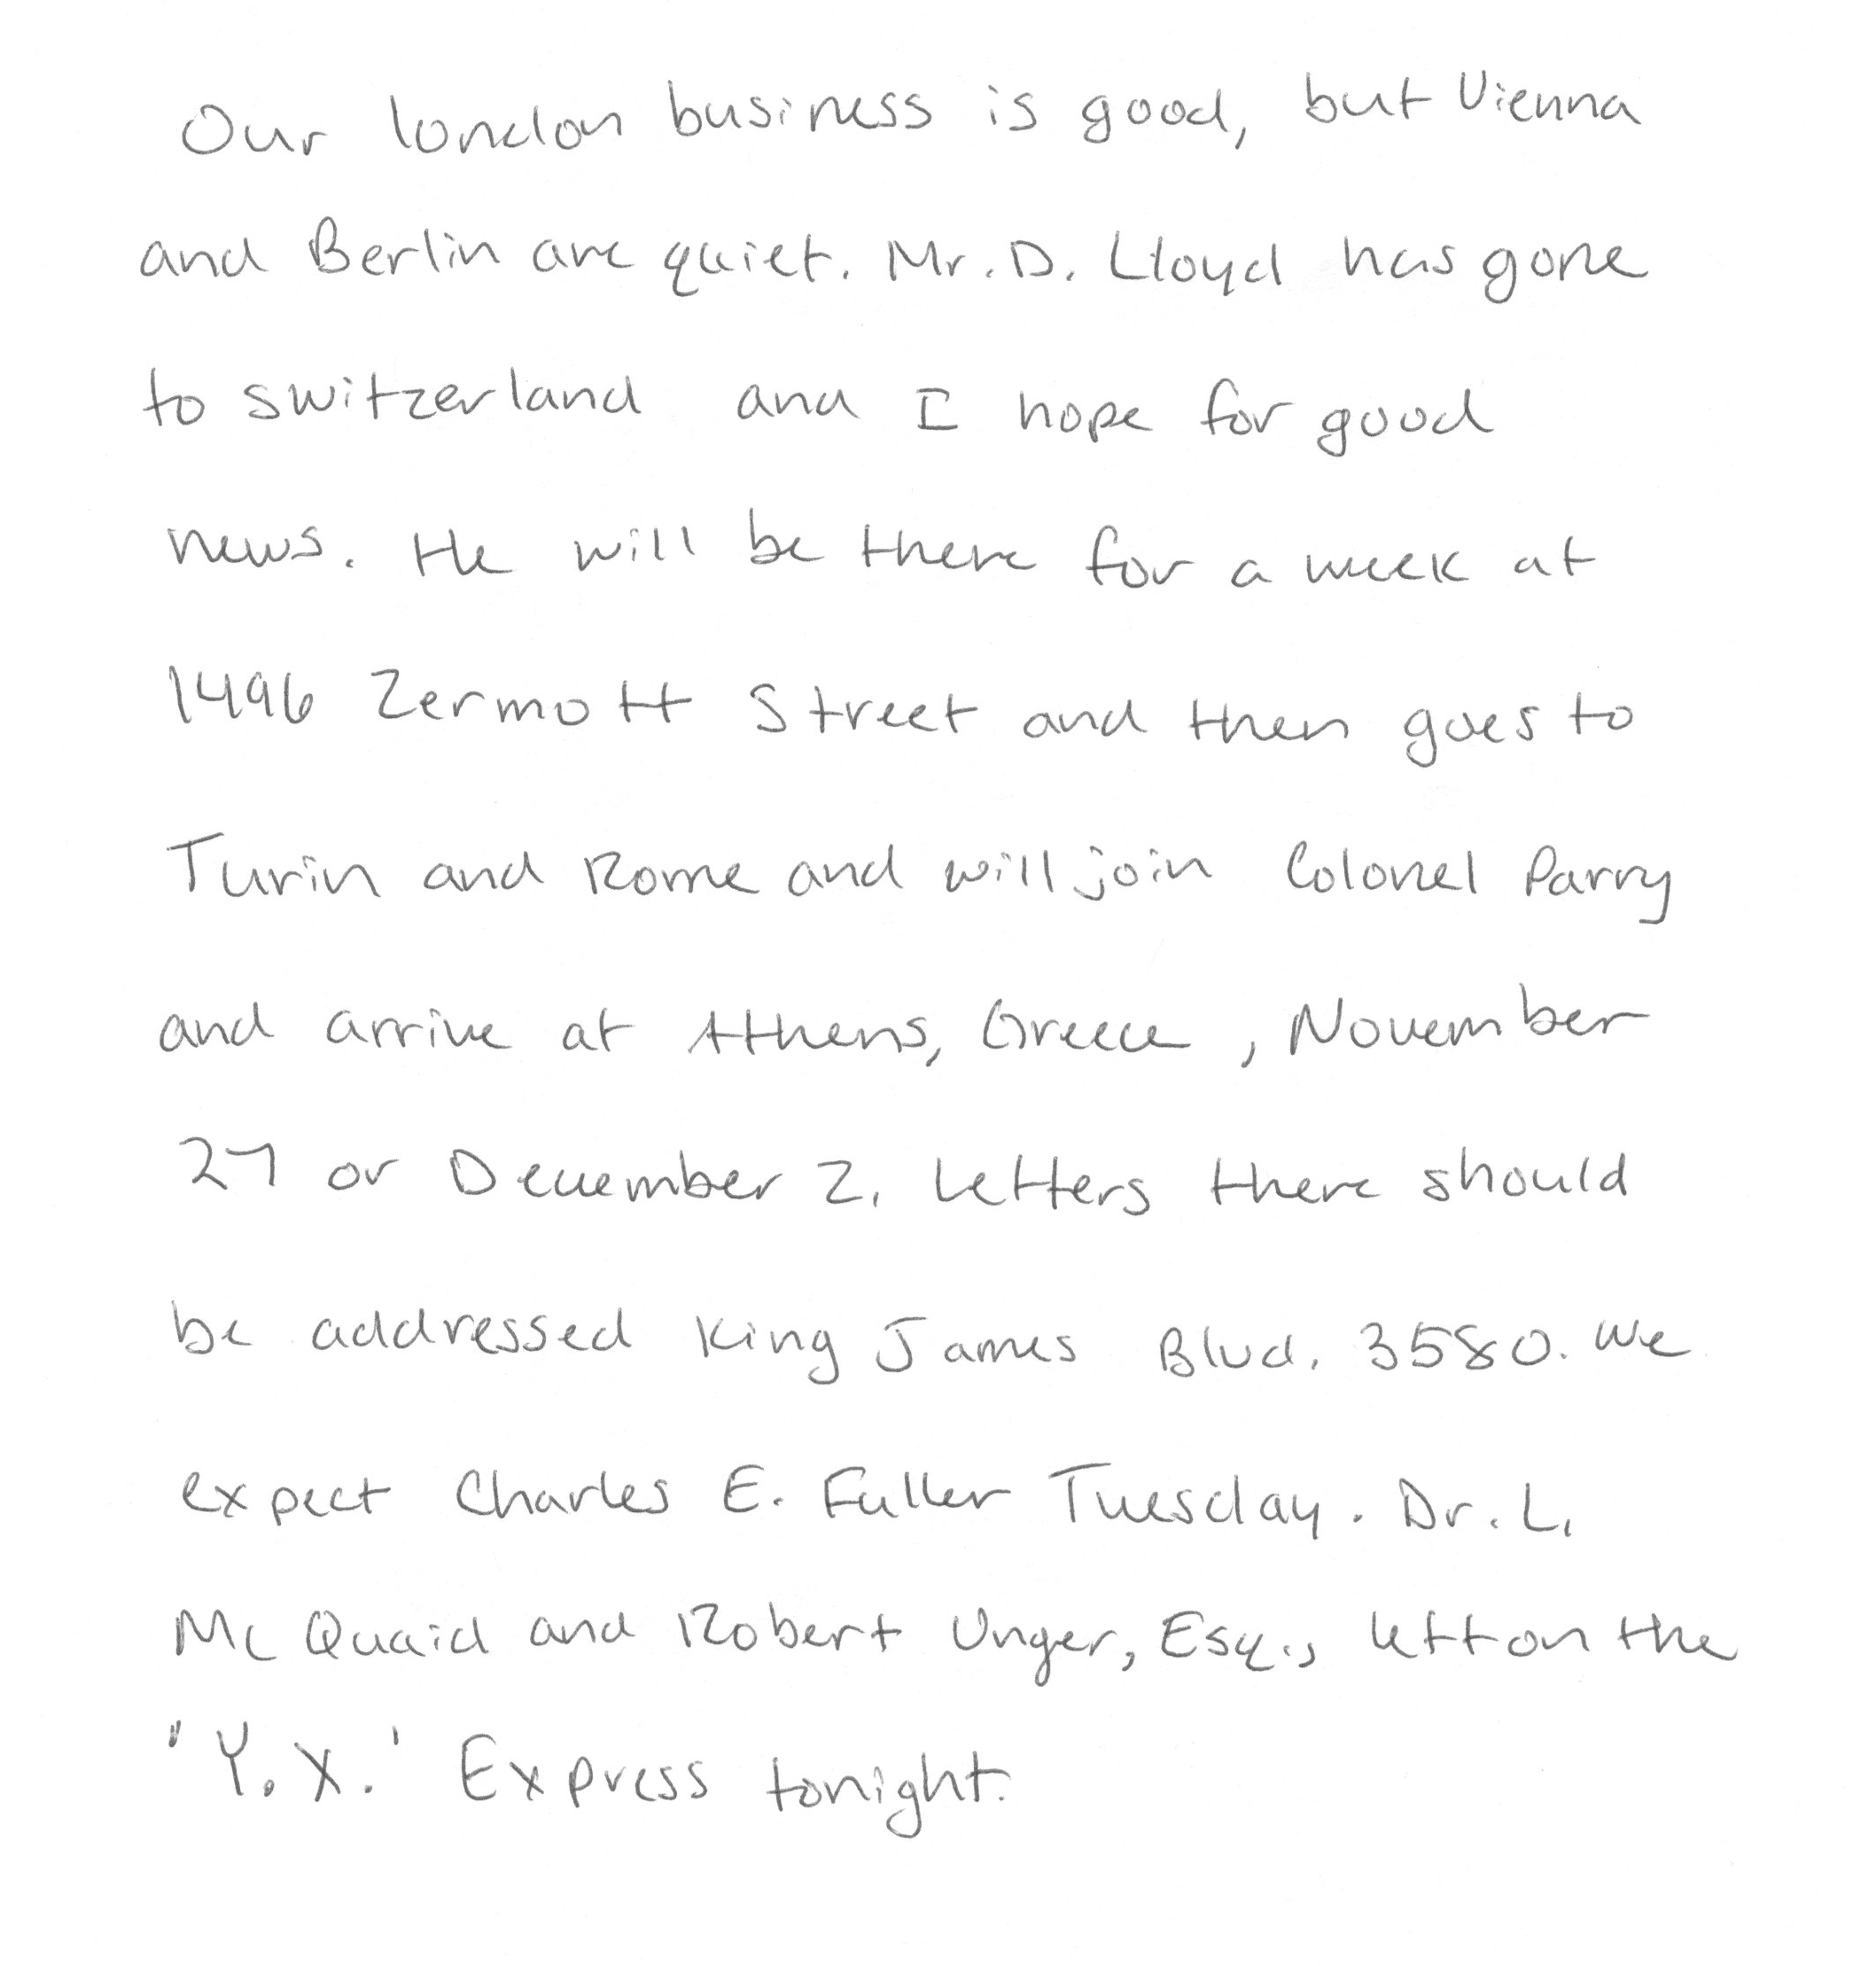 Our london business is good, but Vienna
and Berlin are quiet. Mr. D. Lloyd has gone
to switzerland and I hope for good
news. He will be there for a week at
1496 Zermott Street and then goes to
Turin and Rome and will join Colonel Parry
and arrive at Athens, Greece, November
27 or December 2. Letters there should
be addressed King James Blvd. 3580. We
expect Charles E. Fuller Tuesday. Dr. L.
McQuaid and Robert Unger, Esq., left on the
"Y.X.' Express tonight.